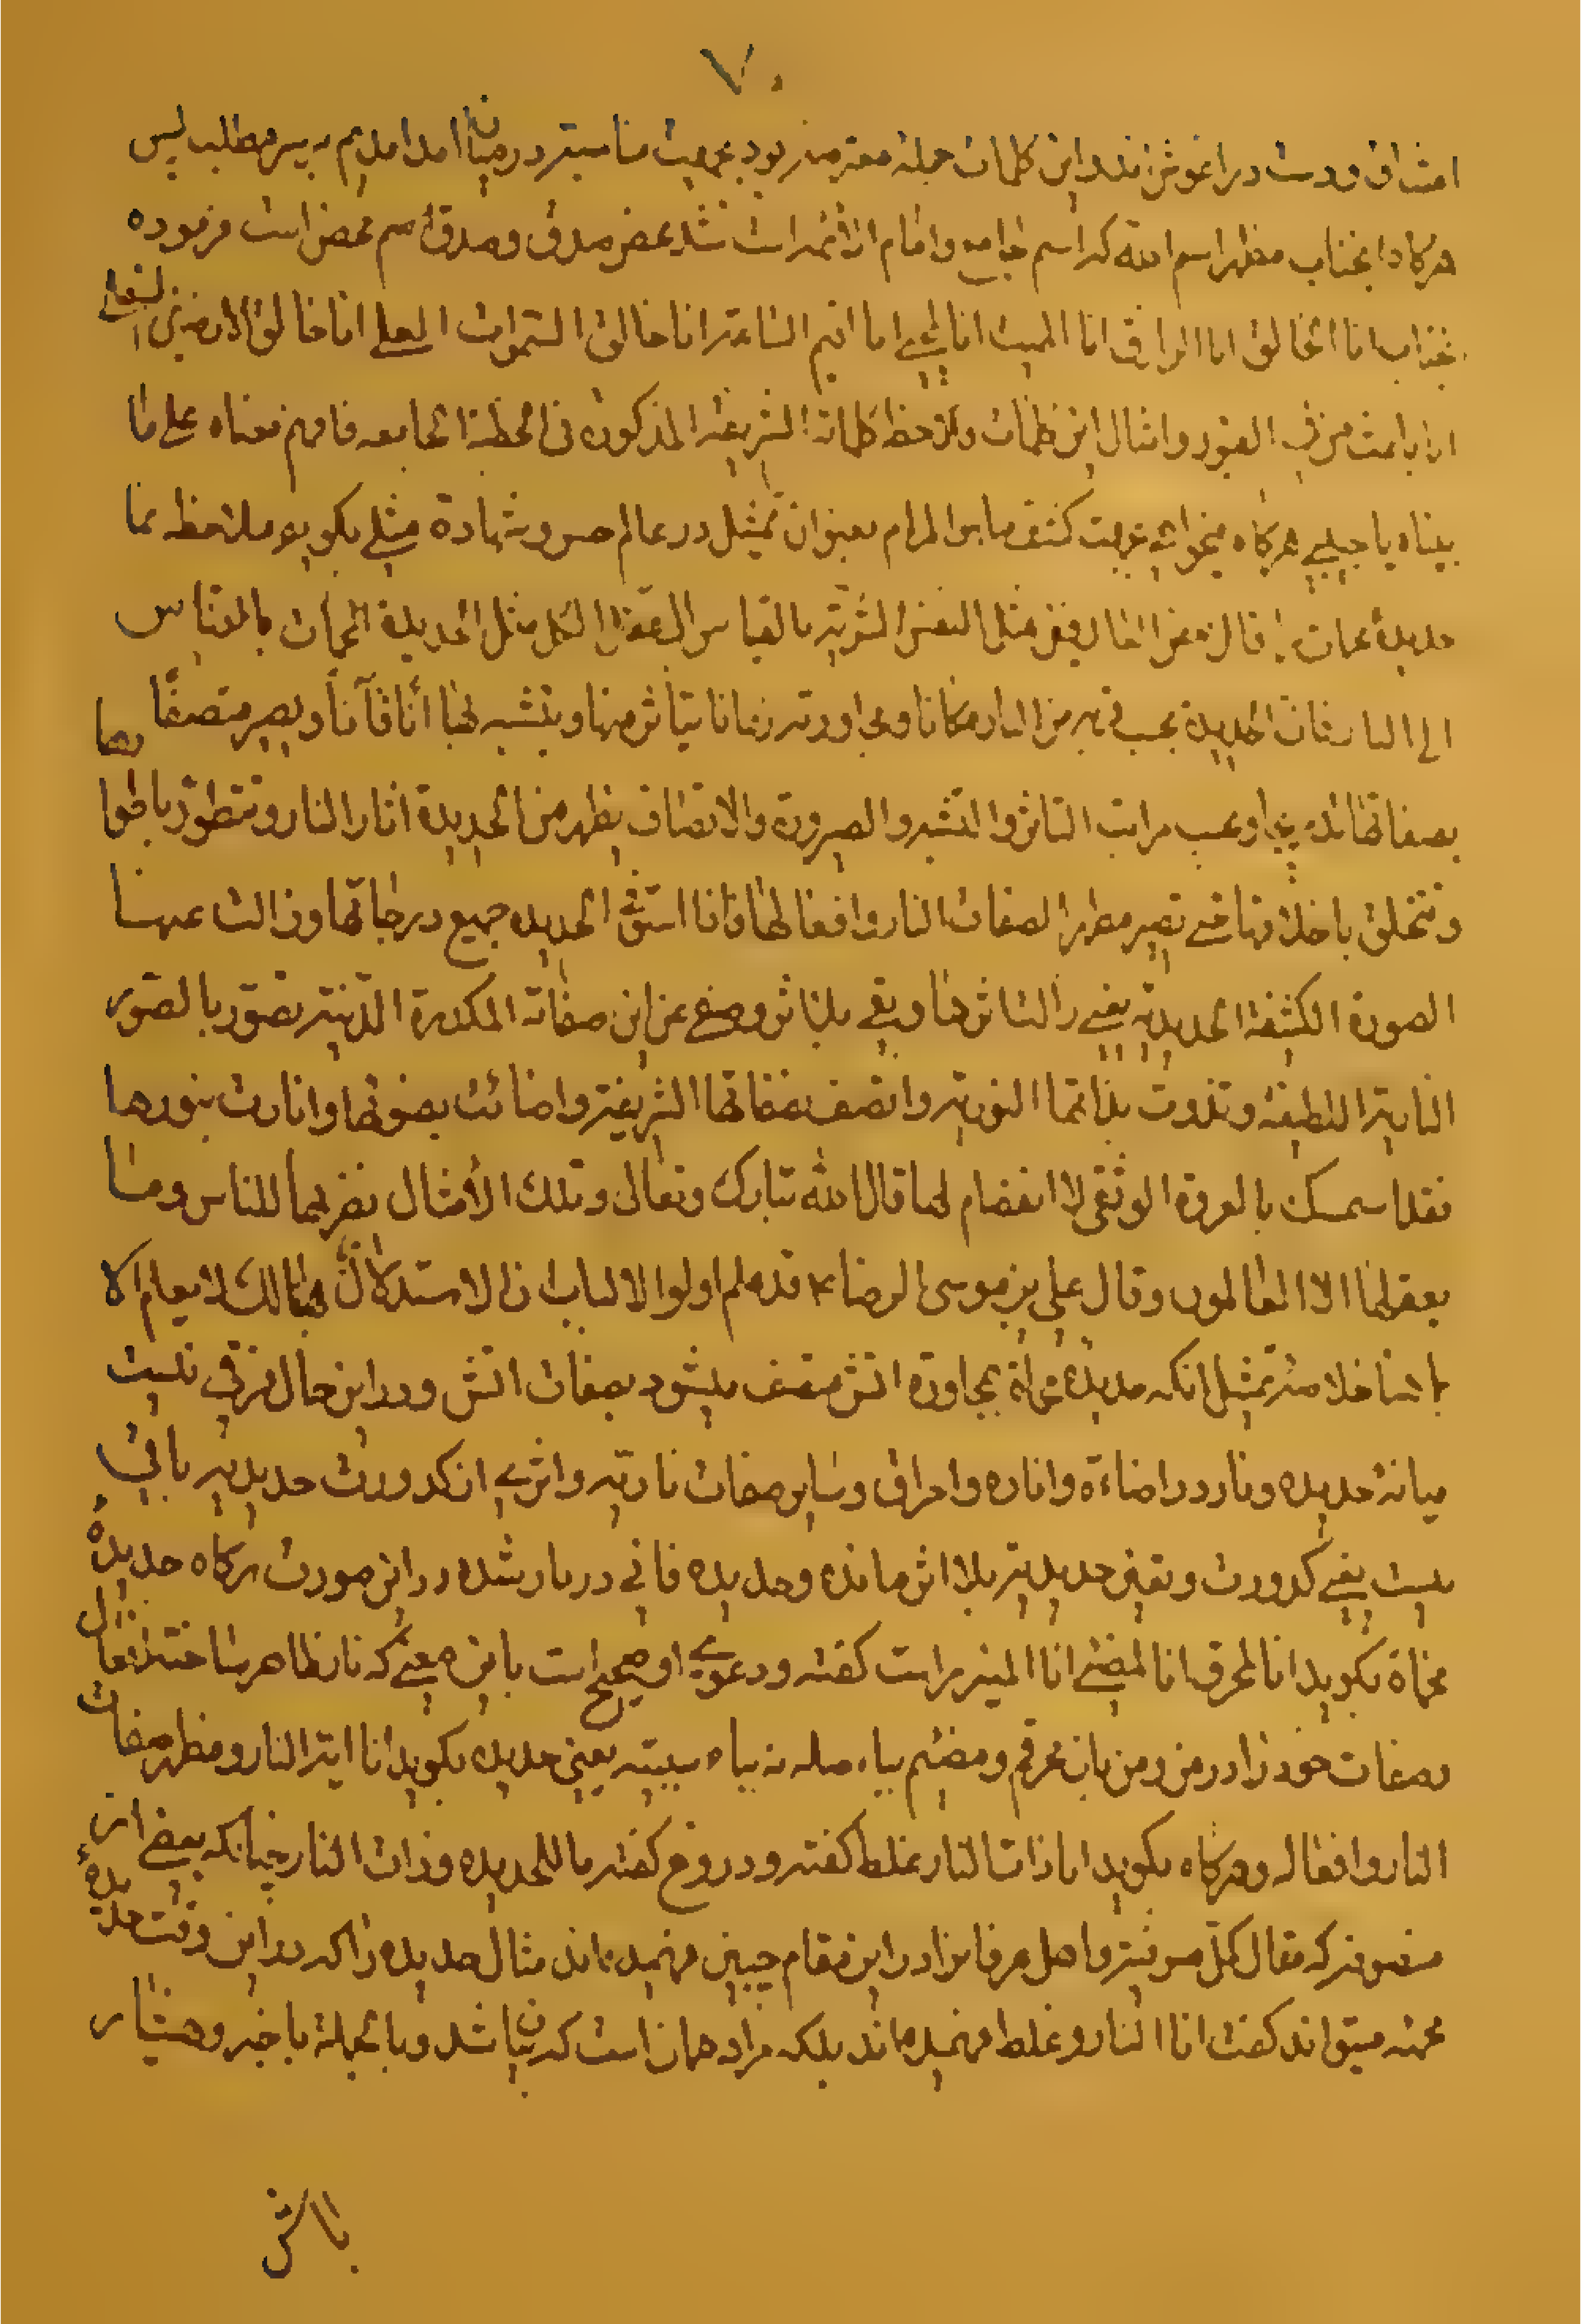 ۷۰
در اغوش اندد این کلمات جمله معترضه بود بجهت مناسبتر در میان امد امدیم به سر مطلب پس
هرگاه انجناب مظهر اسم الله که اسم جامع و امام ائمه است شد محض صدق و صدق اسم محض است فرموده
انجناب انا الخالق انا الرازق انا المیت انا المحیی انا اقیم الساعة انا خالق السموات العلی انا خالق الارضین السفلی
انا باعث من فی القبور و امثال این کلمات و ملاحظه کلماته الشریفة المذکوره فی الخطبة الجامعه فافهم معناه علی ما
بیناه یا حبیبی هرگاه میخواهی بجهت کشف ما هو المرام بعنوان تمثیل در عالم حس و شهادة مثلی بگویم ملاحظه نما
حدیدهٔ محمات را قال بعض العارفین مثل النفس البشریة بالقیاس الی العقل الکل مثل الحدیدة المحمات بالقیاس
الی النار فان الحدیدة بحسب قربه من النار مکانا و مجاورته زمانا یتأثر منها و یتشبه بها أنا فآنا و یصیر متصفا بها
بصفاتها و بحسب مراتب التاثر و التشبه و الصیرورة و الاتصاف یظهر من الحدیدة اثار النار و تتطور باطوارها
و تتخلق باخلاقها حتی تصیر مظهرا لصفات النار و افعالها فاذا استوفی الحدیده جمیع درجاتها و زالت عنها
الصورة الکثیفة الحدیدیة یفنی التاثر هنا و یبقی بلا تاثر و صفی عن این صفاته المکدرة الدنیة تصور بالصور
الناریة اللطیفة و تذوت بذاتها النوریة و اتصف بصفاتها الشریفة و اضائت بضوئها و انارت بنورها
فقد استمسک بالعروة الوثقی لا انفصام لها قال الله تبارک و تعالی و تلک الأمثال نضربها للناس و ما
یعقلها الا العالمون و قال علی بن موسی الرضا ع قد علم اولوا الالباب ان الاستدلال هنالک لا یعلم الا
بما هنا خلاصه تمثیل انکه حدیدهٔ محماة بمجاورة اتش متصف میشود بصفات اتش و در این حال فرقی نیست
میانهٔ حدیده و نار در اضاءة و اناره و احراق و سایر صفات ناریه و اثری از کدورت حدیدیه باقی
نیست یعنی کدورت و تعین حدیدیه بلا اثر مانده و حدیده فانی در نار شده در این صورت هرگاه حدیدهٔ
محماة بگوید انا المحرق انا المضئی انا المنیر راست گفته و دعوی او صحیح است باین معنی که نار ظاهر ساخته افعال
و صفات خود را در من و من بان محرقم و مضیئم بباء صله نه بباء سببیه یعنی حدیده بگوید انا ایة النار و مظهر صفات
النار و افعاله و هرگاه بگوید انا ذات النار غلط گفته و دروغ گفته ما للحدیده و ذات النار چنانکه بعضی از
متصوفه که مقال کل صوفیة و اهل عرفانرا در این مقام چنین فهمیده‌اند مثال حدیده را که در این وقت حدیدهٔ
محمیه میتواند گفت انا النار و غلط فهمیده‌اند بلکه مراد همان است که بیان شد و بالجمله با خبر و هشیار
باش